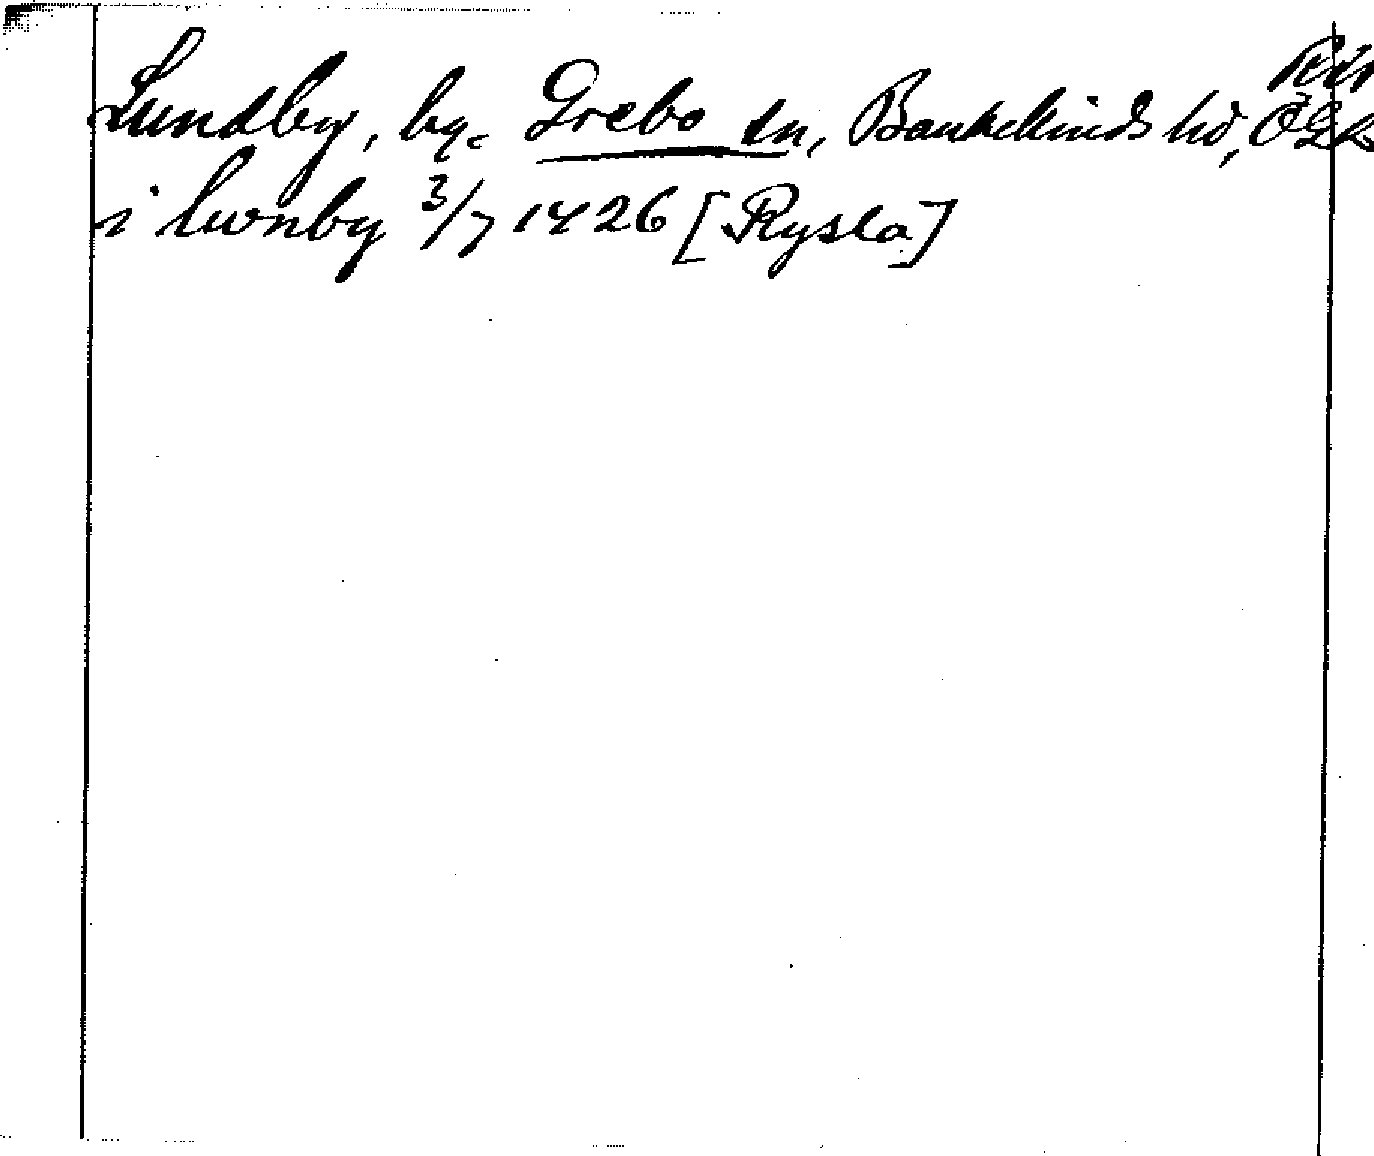 Lundby, by. Grebo sn, Bankekinds hd, ÖGL
i lwnby 3/7 1426 [Rysla]